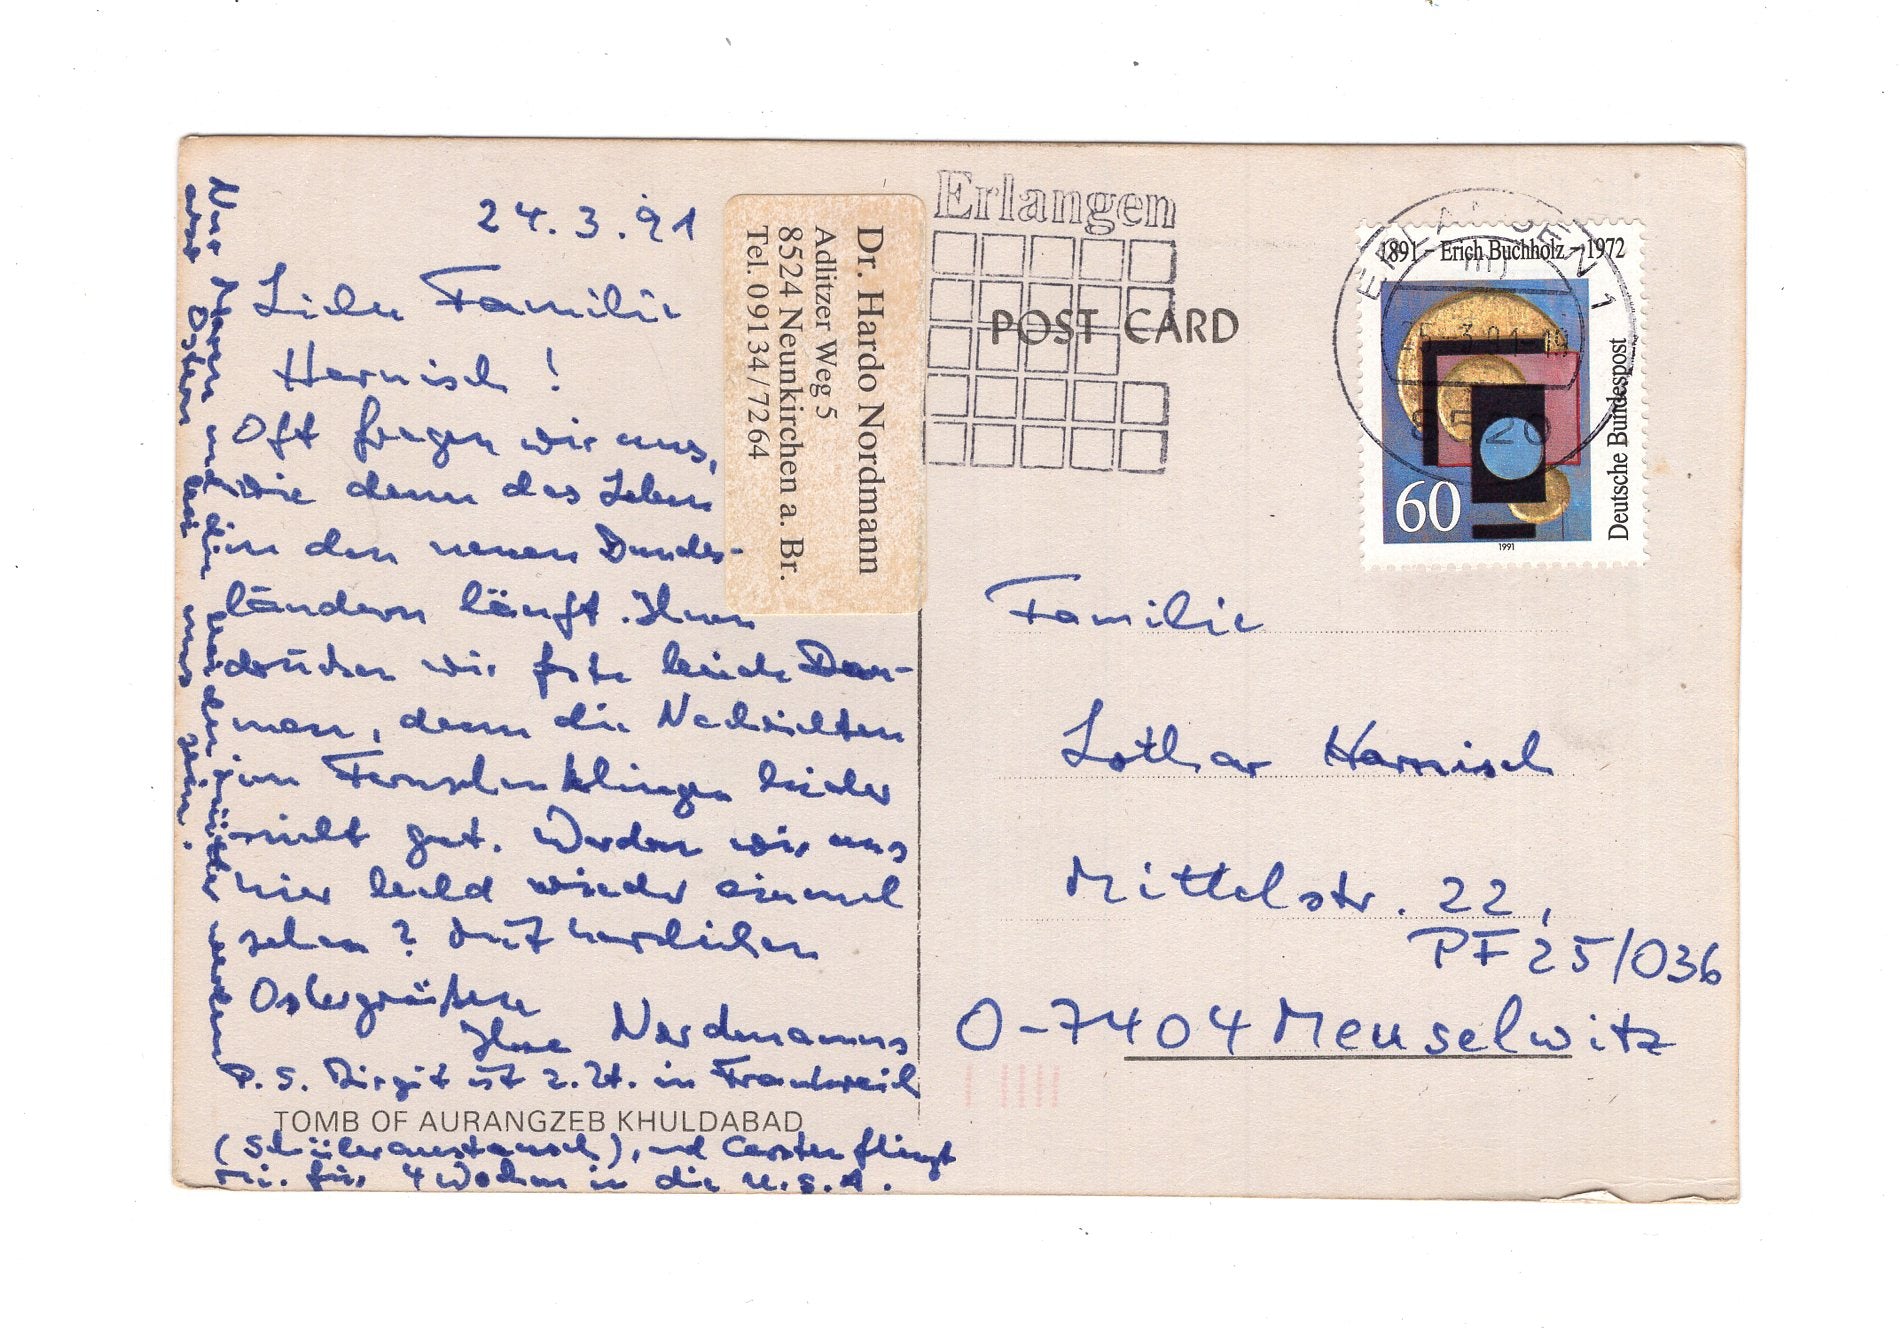 24.3.91
Liebe Familie
Harnisch!
Oft fragen wir uns,
wie denn das Leben
in den neuen Bundes-
ländern läuft. Ihnen
drücken wir feste beide Dau-
men, denn die Nachrichten
im Fernsehen klingen leider
nicht gut. Werden wir uns
hier bald wieder einmal
sehen? Mit herzlichen
Ostergrüßen
Ihre Nordmanns
P.S. Birgit ist z.Zt. in Frankreich
TOMB OF AURANGZEB KHULDABAD
(Schüleraustausch), und Carsten fliegt
Mi. für 4 Wochen in die U.S.A.
Ostern bei uns sein.
Dr. Hardo Nordmann
Adlitzer Weg 5
8524 Neunkirchen a. Br.
Tel. 09134/7264
Erlangen
POST CARD
ERLANGEN 1
25.-3.91-19
8520
1891 – Erich Buchholz – 1972
Deutsche Bundespost
60
1991
Familie
Lothar Harnisch
Mittelstr. 22,
PF 25/036
O-7404 Meuselwitz